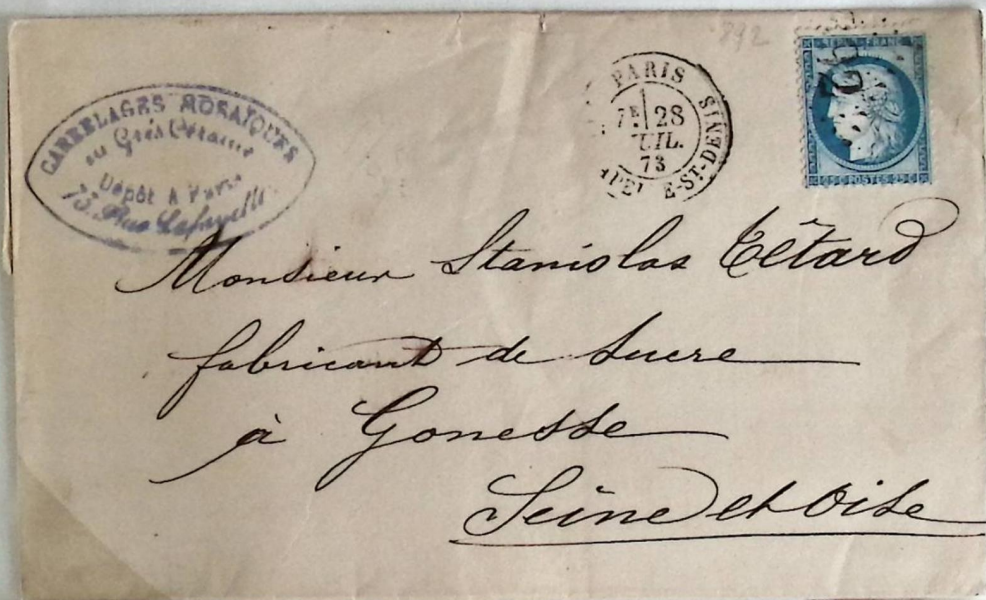 892
CARRELAGES MOSAIQUES
en Grès Cérame
Dépôt à Paris
73. Rue Lafayette
PARIS
7E 28
UIL.
73
E-ST-DENIS
REPUB. FRANC.
25 C POSTES 25 C
Monsieur Stanislas Têtard
fabricant de Sucre
à Gonesse
Seine et Oise